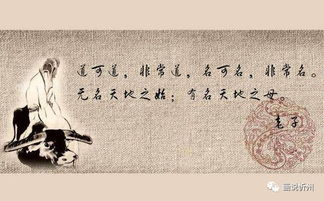 道可道，非常道，名可名，非常名。
无名天地之始；有名天地之母。
老子
画说忻州